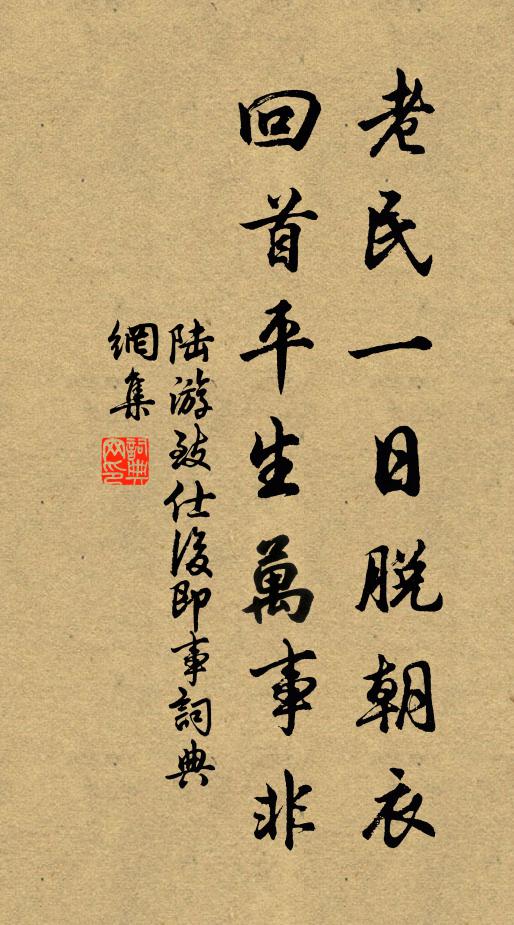 老民一日脱朝衣
回首平生萬事非
陆游致仕後即事詞典
網集
詞典
网印